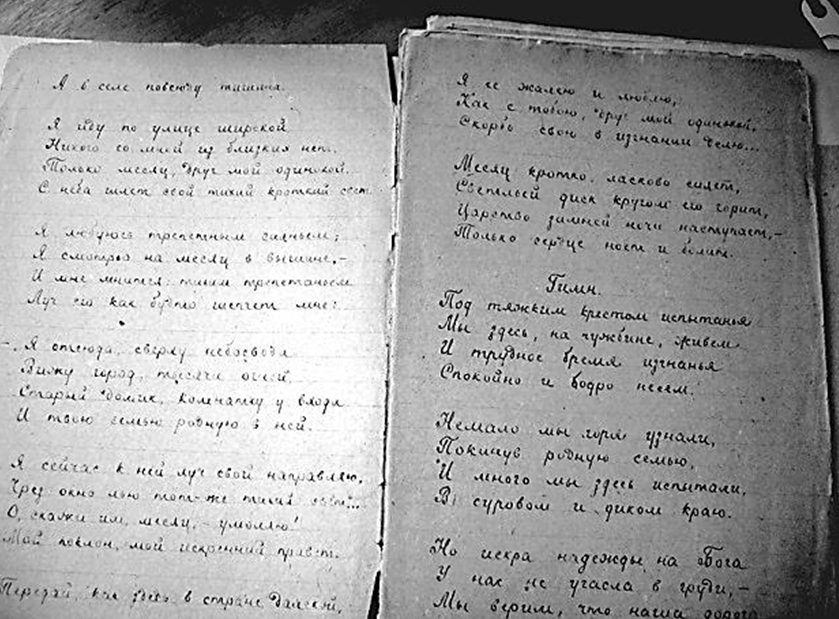 А в селе повсюду тишина.
Я иду по улице широкой
Никого со мной из близких нет.
Только месяц, друг мой одинокой
С неба шлет свой тихий кроткий свет.
Я любуюсь трепетным сияньем;
Я смотрю на месяц в вышине,-
И мне мнится: тихим трепетаньем
Луч его как будто шепчет мне:
- Я отсюда, сверху небосвода
Вижу город, тысячи огней,
Старый домик, комнатку у входа
И твою семью родную в ней.
Я сейчас к ней луч свой направляю,
Чрез окно лью тот-же тихий свет...
О, скажи им, месяц,- умоляю!
Мой поклон, мой искренний привет.
Передай, как здесь в стране далекой,
Я ее жалею и люблю,
Как с тобою, друг мой одинокой,
Скорбь свою в изгнании делю...
Месяц кротко, ласково сияет,
Светлый диск кругом его горит,
Царство зимней ночи наступает,-
Только сердце ноет и болит.
Гимн.
Под тяжким крестом испытанья
Мы здесь, на чужбине, живем
И трудное бремя изгнанья
Спокойно и бодро несем.
Немало мы горя узнали,
Покинув родную семью,
И много мы здесь испытали,
В суровом и диком краю.
Но искра надежды на Бога
У нас не угасла в груди,-
Мы верим, что наша дорога